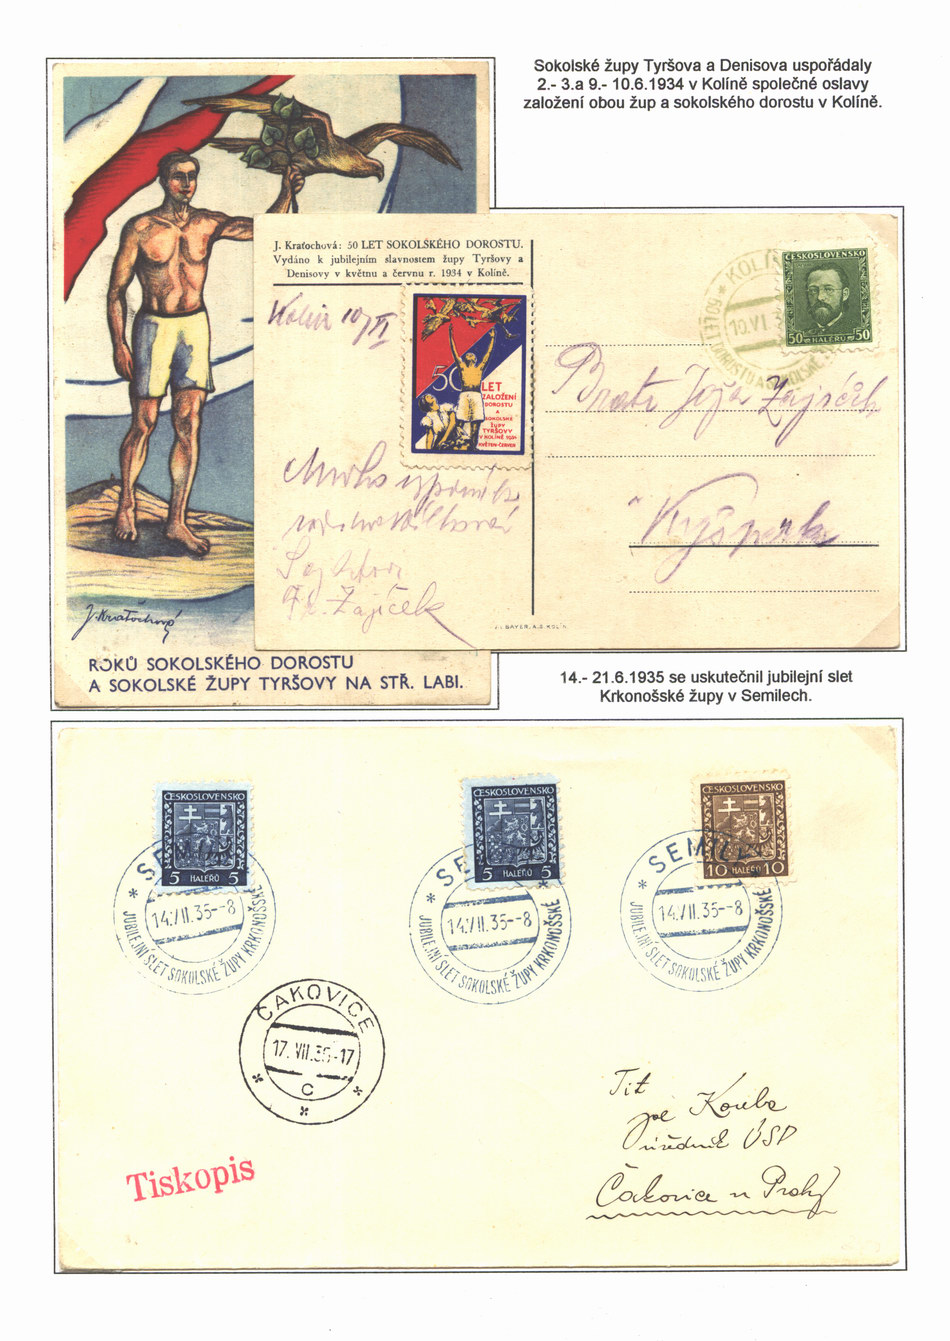 Sokolské župy Tyršova a Denisova uspořádaly
2.- 3.a 9.- 10.6.1934 v Kolíně společné oslavy
založení obou žup a sokolského dorostu v Kolíně.
J. Kraťochvový
ROKŮ SOKOLSKÉHO DOROSTU
A SOKOLSKÉ ŽUPY TYRŠOVY NA STŘ. LABI.
J. Kraťochová: 50 LET SOKOLSKÉHO DOROSTU.
Vydáno k jubilejním slavnostem župy Tyršovy a
Denisovy v květnu a červnu r. 1934 v Kolíně.
Kolín 10/VI
50
LET
ZALOŽENÍ
DOROSTU
A
SOKOLSKÉ
ŽUPY
TYRŠOVY
V KOLÍNĚ 1934
KVĚTEN-ČERVEN
Fr. Zajíček
J. BAYER, A.S. KOLÍN
KOLÍN
10.VI.
ČESKOSLOVENSKO
50 HALÉŘŮ 50
Zajíček
14.- 21.6.1935 se uskutečnil jubilejní slet
Krkonošské župy v Semilech.
ČESKOSLOVENSKO
5 HALÉŘŮ 5
SEMILY
14.VII.35--8
JUBILEJNÍ SLET SOKOLSKÉ ŽUPY KRKONOŠSKÉ
ČESKOSLOVENSKO
5 HALÉŘŮ 5
SEMILY
14.VII.35--8
JUBILEJNÍ SLET SOKOLSKÉ ŽUPY KRKONOŠSKÉ
ČESKOSLOVENSKO
10 HALÉŘŮ 10
SEMILY
14.VII.35--8
JUBILEJNÍ SLET SOKOLSKÉ ŽUPY KRKONOŠSKÉ
ČAKOVICE
17.VII.35-17
C
Tiskopis
Tit
Jos Kouba
úředník ÚSP
Čakovice u Prahy